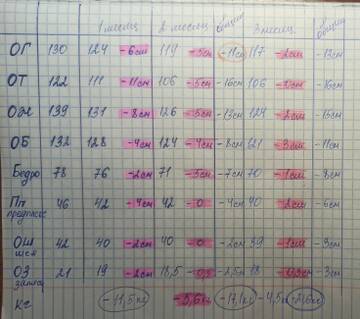 1 месяц 2 месяц общий 3 месяц общий
ОГ 130 124 -6см 119 -5см -11см 117 -2см -13см
ОТ 122 111 -11см 106 -5см -16см 106
ОЖ 139 131 -8см 126 -5см -13см 124 -2см -15см
ОБ 132 128 -4см 124 -4см -8см 121 -3см -11см
Бедро 78 76 -2см 71 -5см -7см 70 -1см -8см
Пп 46 42 -4см 42 -0 -4см 40 -2см -6см
предплечье
ОШ 42 40 -2см 40 -0 -2см 39 -1см -3см
шея
ОЗ 21 19 -2см 18,5 -0,5 -2,5см 18 -0,5см -3см
запястье
кг -11,5кг -5,6кг -17,1кг -4,5кг -21,6кг